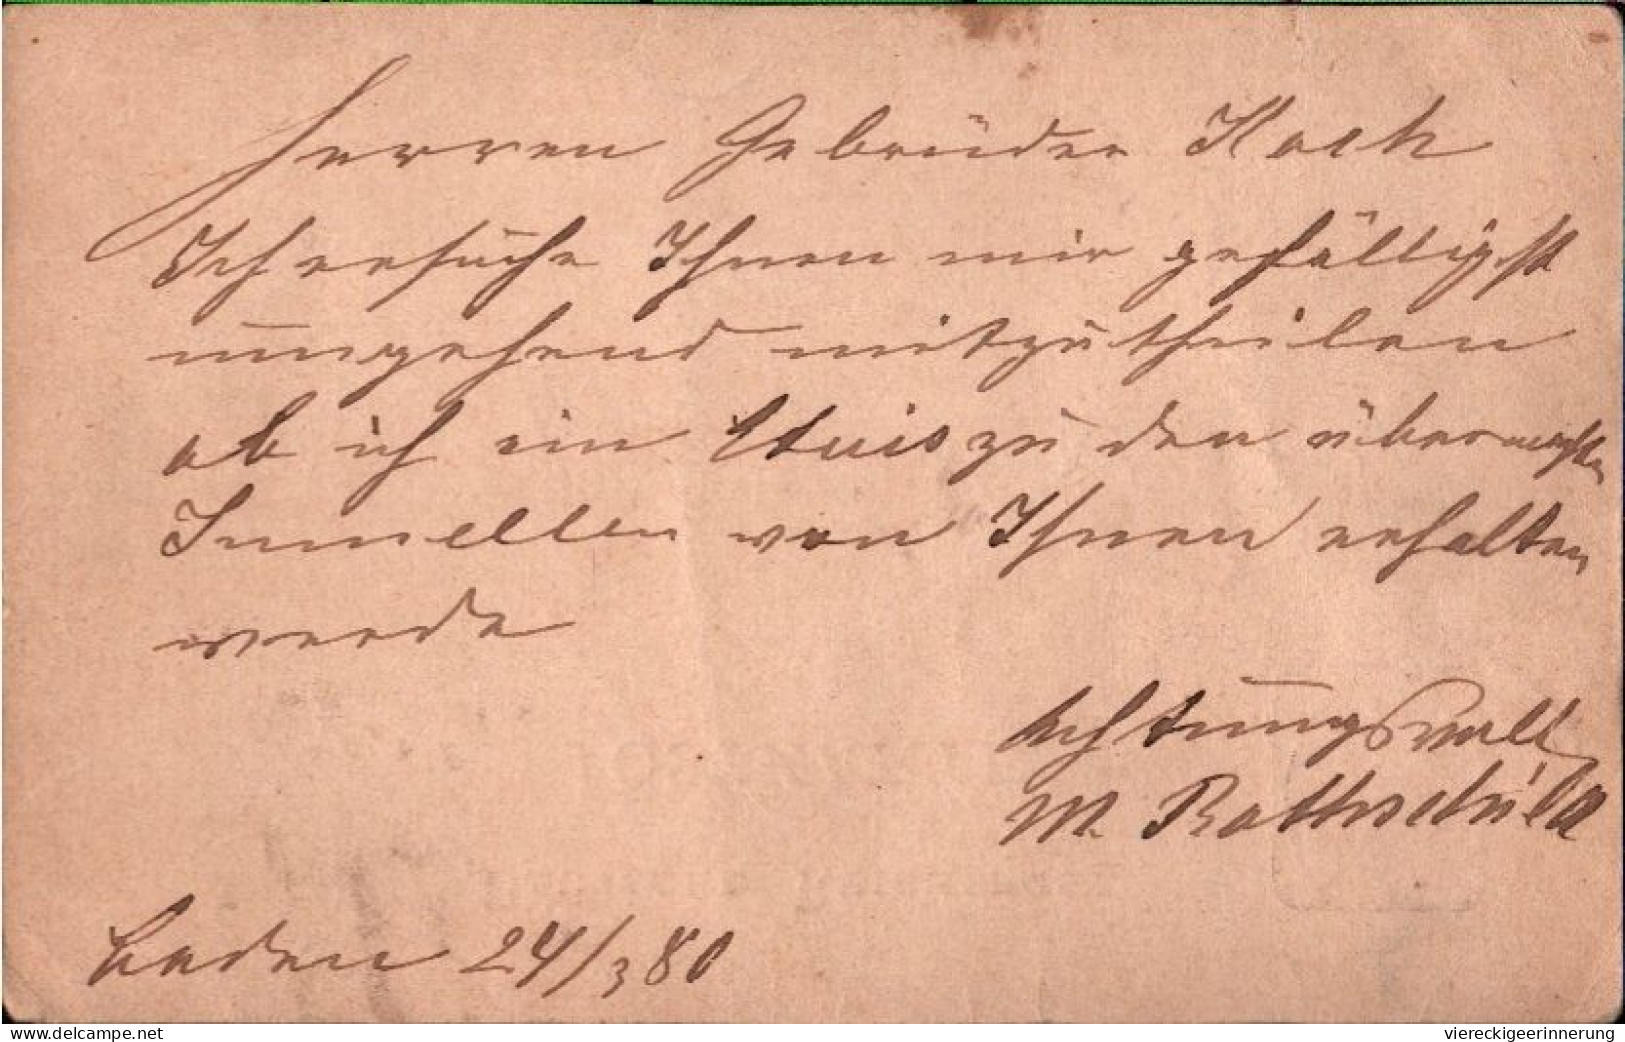 Herren Gebrüder Koch
Ich ersuche Ihnen mir gefälligst
umgehend mitzutheilen
ob ich ein Etuis zu den übermachten
Juwellen von Ihnen erhalten
werde
Achtungsvoll
M. Rothschild
Baden 24/3 80
www.delcampe.net
viereckigeerinnerung